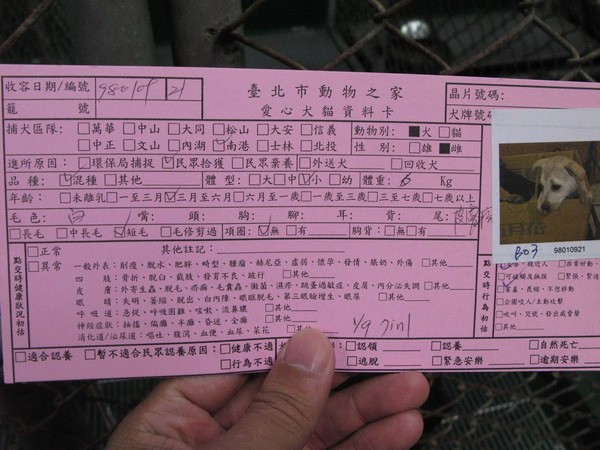 收容日期/編號 980109 21
臺北市動物之家
晶片號碼:
籠 號
愛心犬貓資料卡
犬牌號碼
捕犬區隊: □萬華 □中山 □大同 □松山 □大安 □信義 動物別: ■犬 □貓
□中正 □文山 □內湖 ☑南港 □士林 □北投 性 別: □雄 ■雌
進所原因: □環保局捕捉 ☑民眾拾獲 □民眾棄養 □外送犬 □回收犬
品 種: ☑混種 □其他 體 型: □大 □中 ☑小 □幼 體重: 6 Kg
年齡: □未離乳 □一至三月 ☑三至六月 □六月至一歲 □一至三歲 □三至七歲 □七歲以上
毛 色: 白 嘴: 頭: 胸: 腳: 耳: 背: 尾:
□長毛 □中長毛 ☑短毛 □毛修剪過 項圈: ☑無 □有 胸背: □無 □有
B03 98010921
點交時健康狀況初估
□正常 其他註記:
□異常 一般外表: 削瘦、脫水、肥胖、畸型、腫瘤、赫尼亞、虛弱、懷孕、發情、脹奶、外傷 □其他
四 肢: 骨折、脫臼、截肢、發育不良、跛行 □其他
皮 膚: 外寄生蟲、脫毛、疥癬、毛囊蟲、黴菌、濕疹、跳蚤過敏症、皮屑、內分泌失調 □其他
眼 睛: 失明、萎縮、脫出、白內障、眼瞼脫毛、第三眼瞼增生、眼屎 □其他
呼 吸 道: 急促、呼吸困難、咳嗽、流鼻膿 □其他
神經症狀: 抽搐、偏癱、半癱、昏迷、全癱 □其他
消化道/泌尿道: 嘔吐、腹瀉、血便、血尿、菜花 □其
1/9 7in1
點交時行為初估
□適合認養 □暫不適合民眾認養原因: □健康不適 □認領 □認養 □自然死亡
□行為不 □逃脫 □緊急安樂 □安樂死